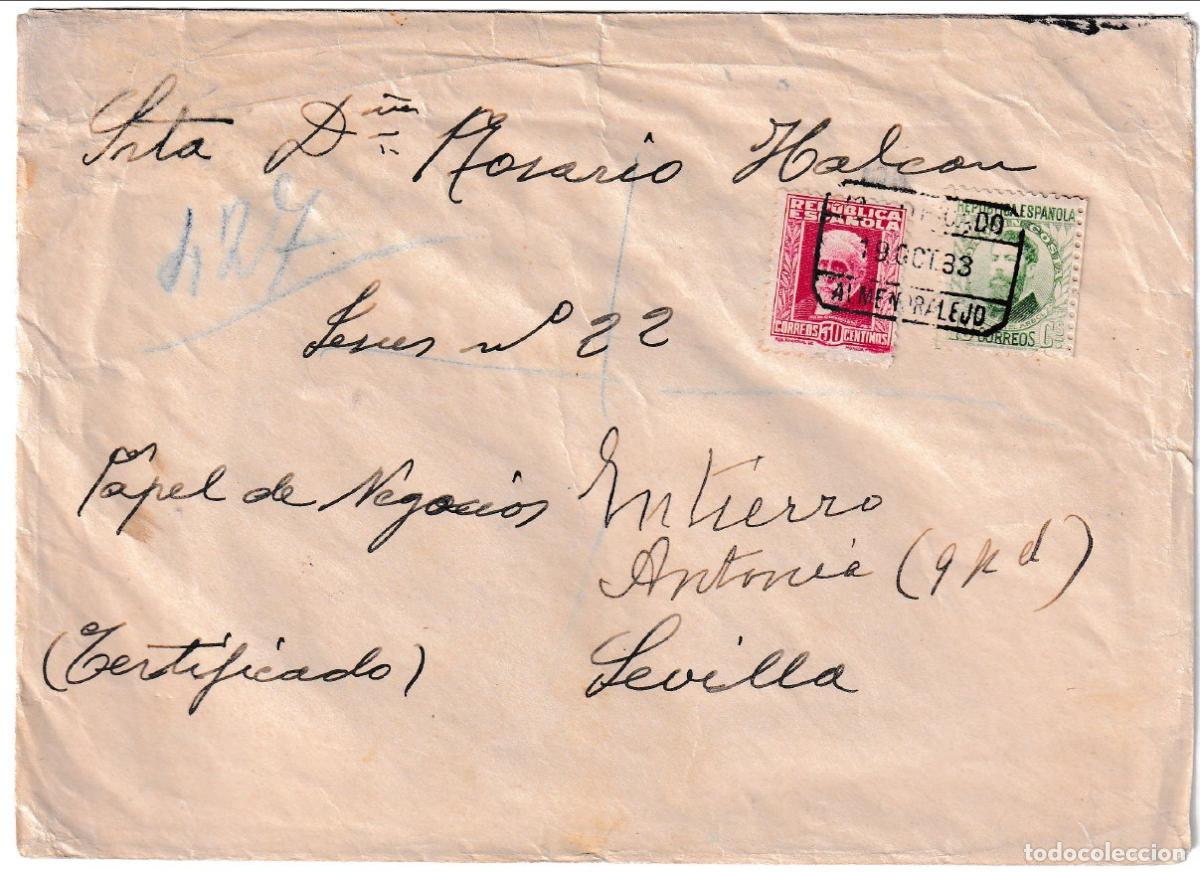 Srta Dña Rosario Halcon
427
REPÚBLICA
ESPAÑOLA
CORREOS 30 CENTIMOS
REPÚBLICA ESPAÑOLA
COSTA
CORREOS
CERTIFICADO
19 OCT.33
ALMENDRALEJO
Jesus nº 22
Papel de Negocios
Entierro
Antonia (q p d)
(Certificado)
Sevilla
todocoleccion